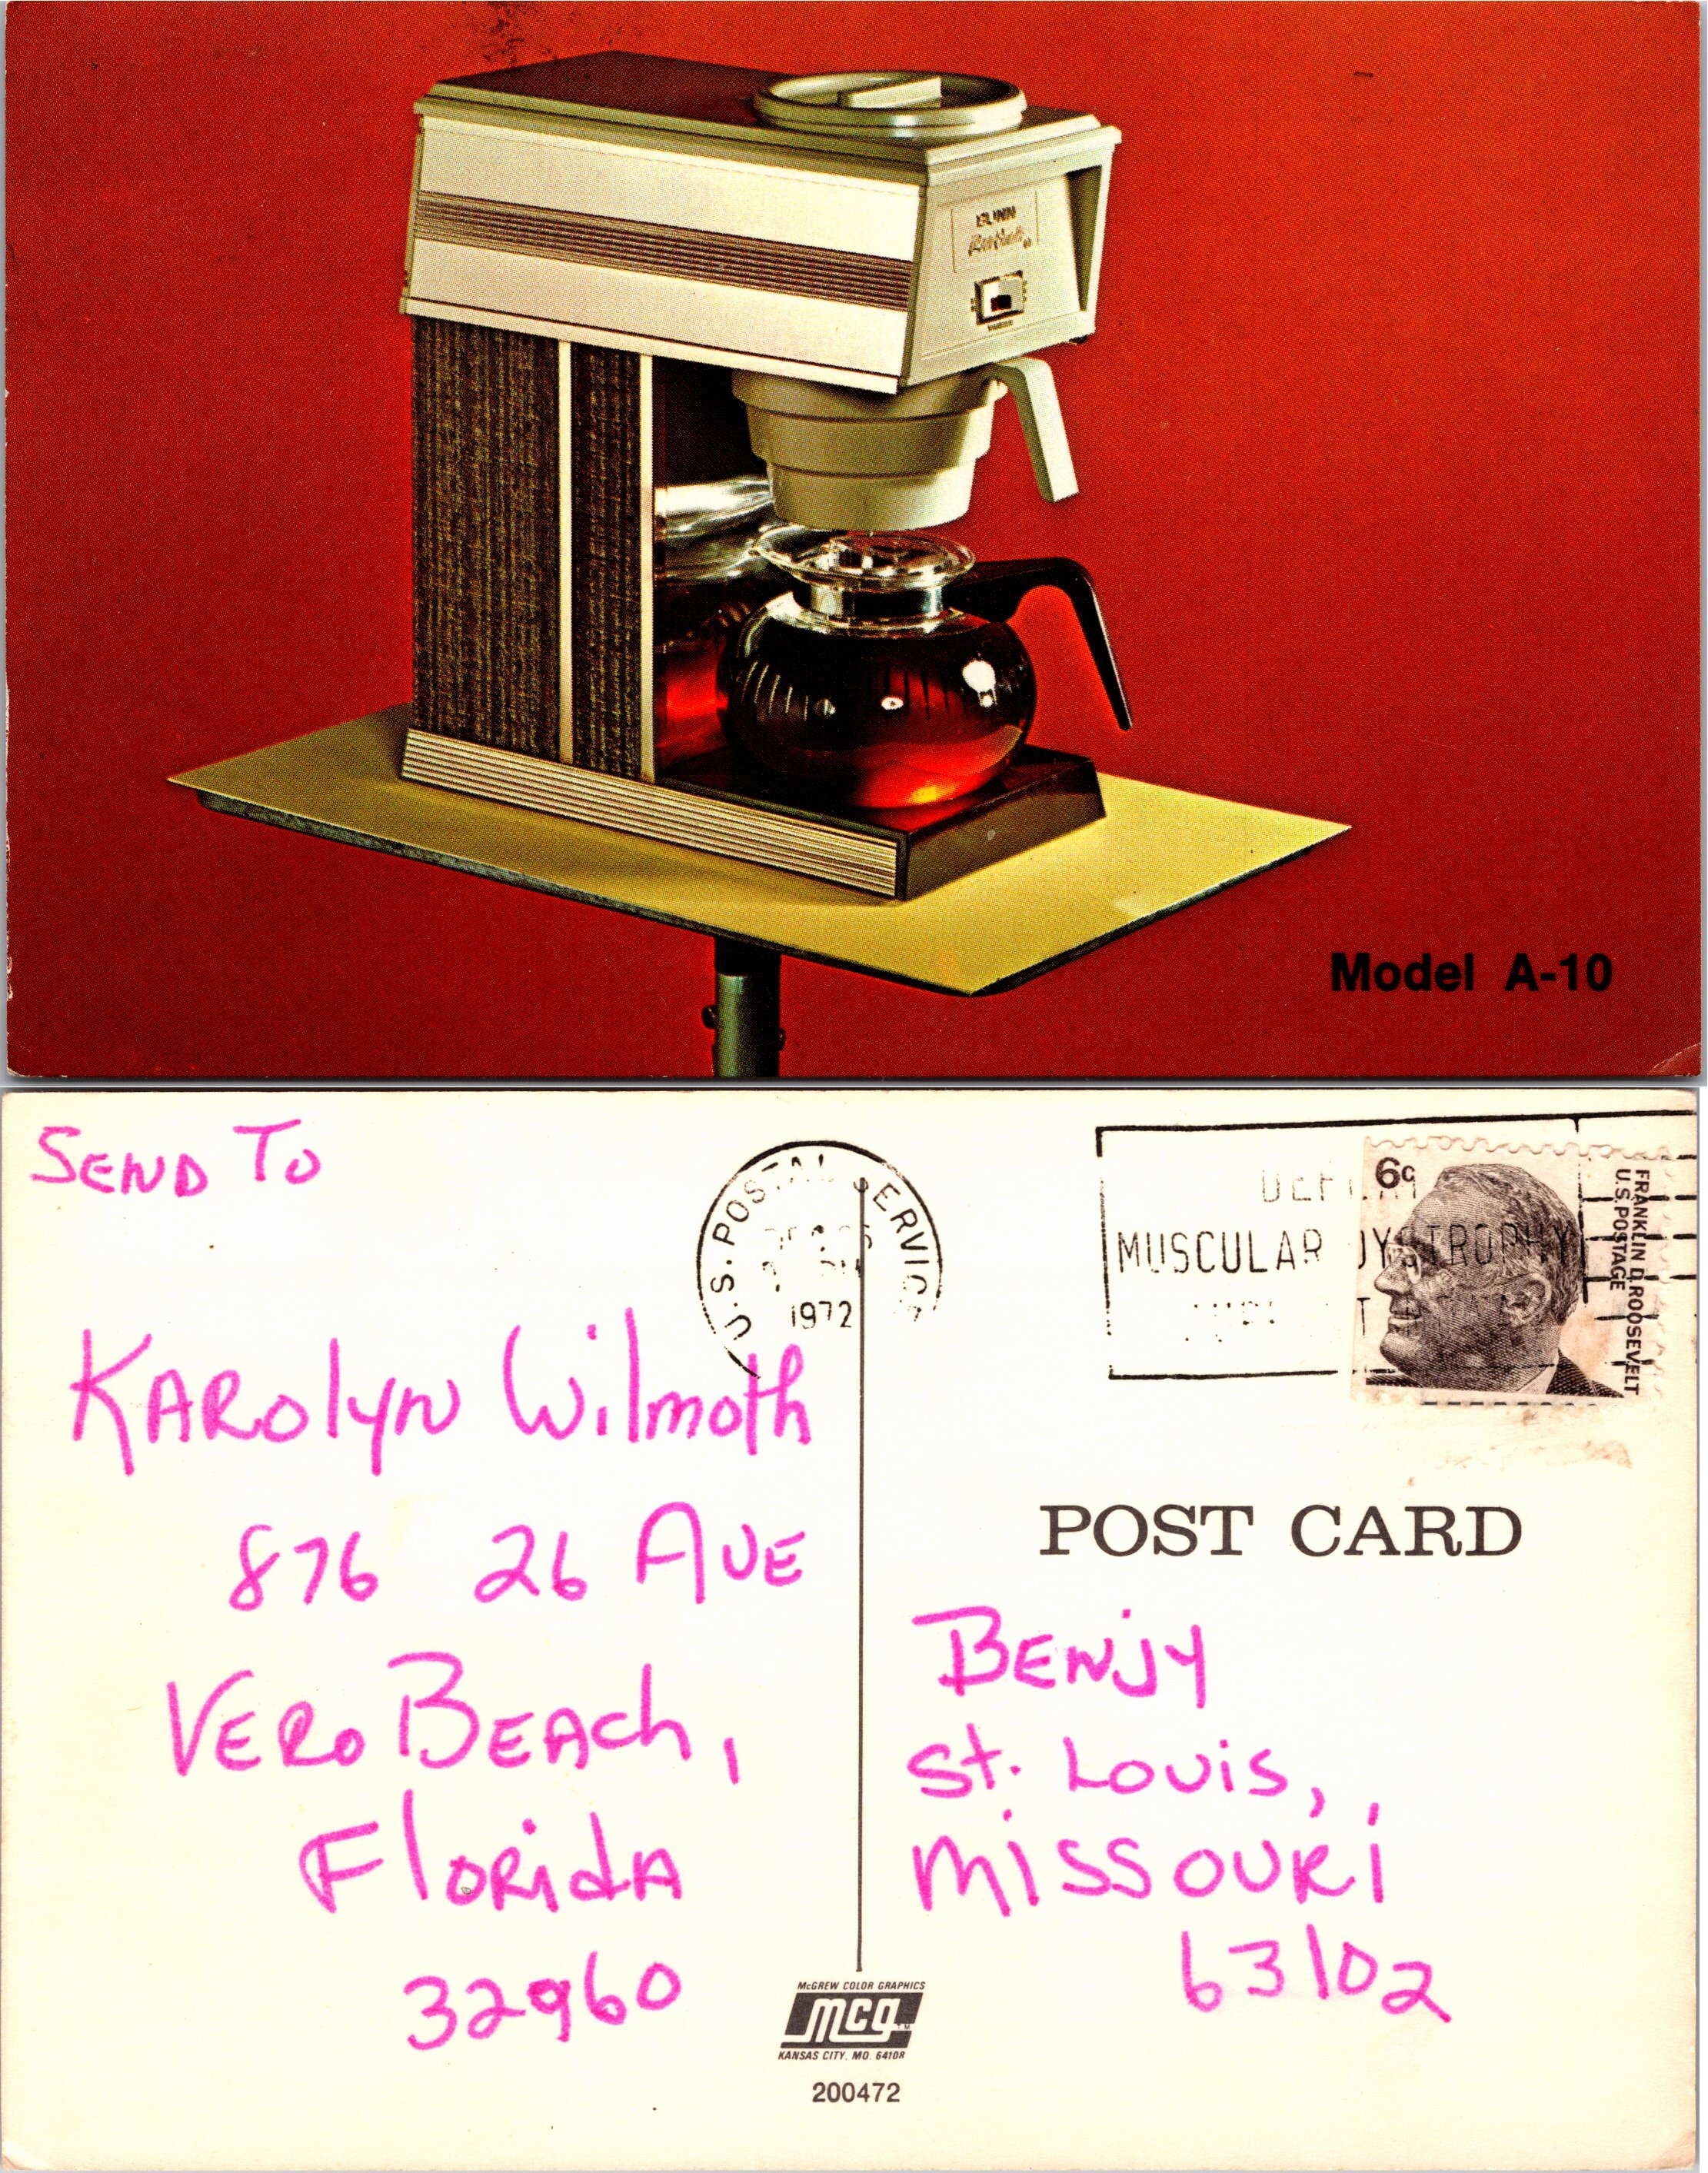 BUNN
Model A-10
SEND TO
KAROlyN Wilmoth
876 26 AVE
VERO BEACh,
FloRidA
32960
U.S. POSTAL SERVICE
1972
MUSCULAR DYSTROPHY
6c
FRANKLIN D. ROOSEVELT
U.S. POSTAGE
POST CARD
BENjY
St. Louis,
MiSSOURi
63102
McGREW COLOR GRAPHICS
mcg TM
KANSAS CITY, MO. 64108
200472